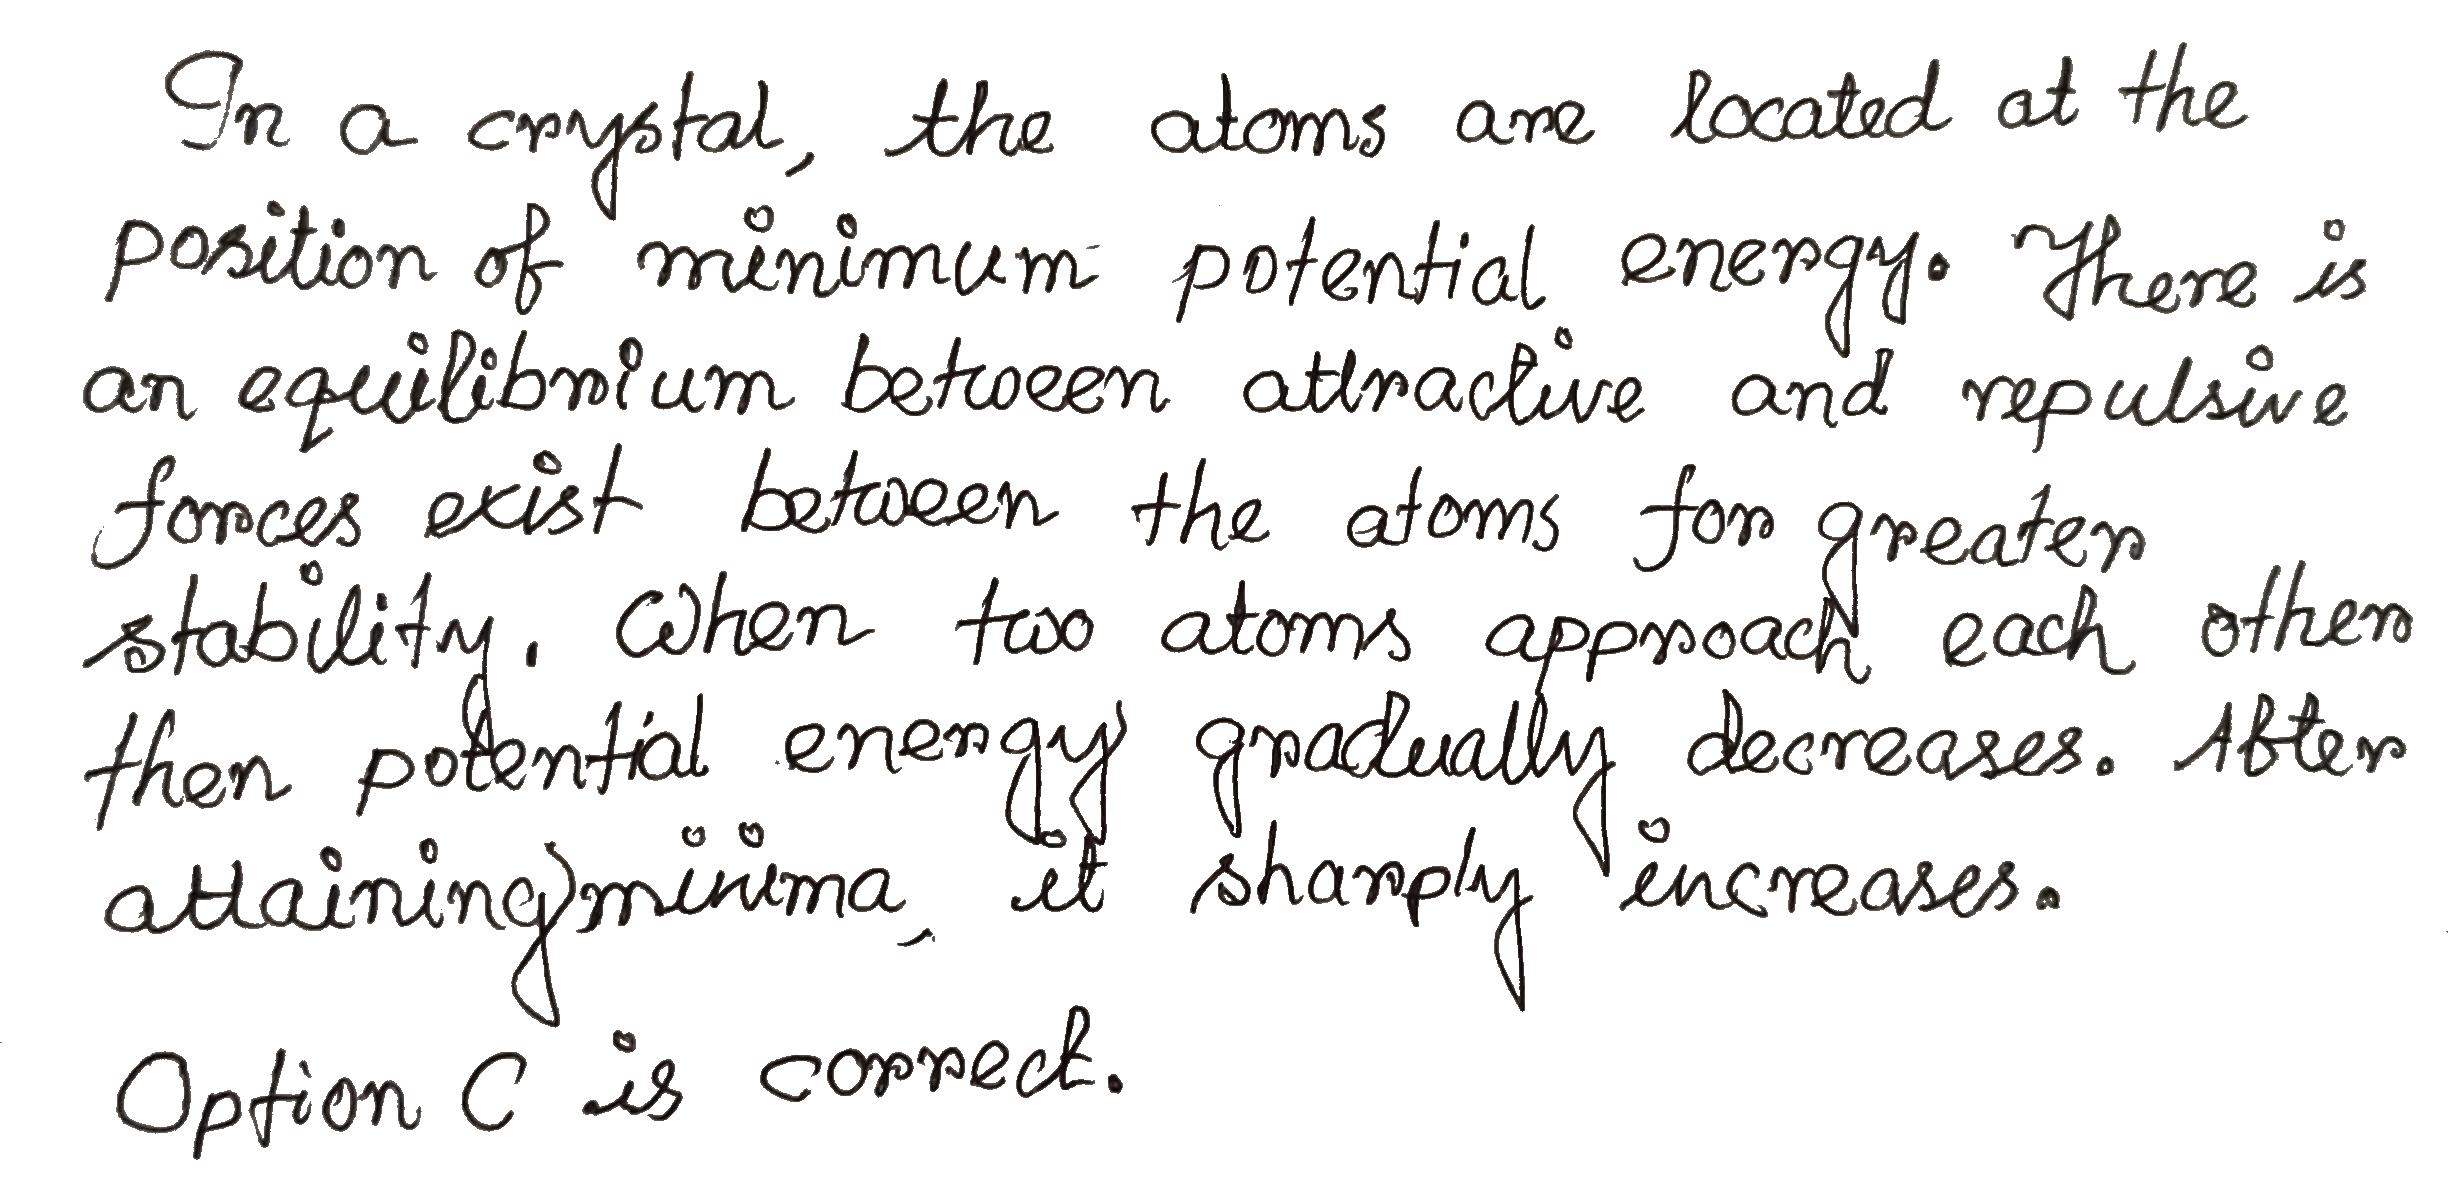 In a crystal, the atoms are located at the
position of minimum potential energy. There is
an equilibrium between attractive and repulsive
forces exist between the atoms for greater
stability. When two atoms approach each other
then potential energy gradually decreases. After
attaining minima, it sharply increases.
Option C is correct.